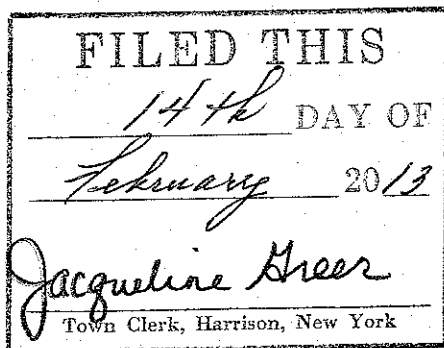 FILED THIS
14th DAY OF
February 2013
Jacqueline Greer
Town Clerk, Harrison, New York